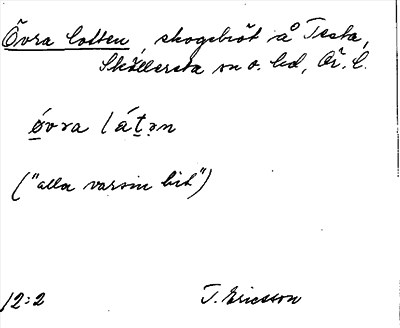 Övra lotten, skogsbit å Testa,
Skållersta sn o. hd, Ör. l.
øvra látən
("alla varsin bit")
12:2 T. Ericsson